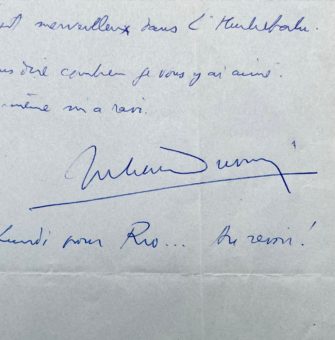 merveilleux dans l'Hurluberlu.
dire combien je vous y ai aimé.
même m'a ravi.
Julien Duvivier
Lundi pour Rio... Au revoir!